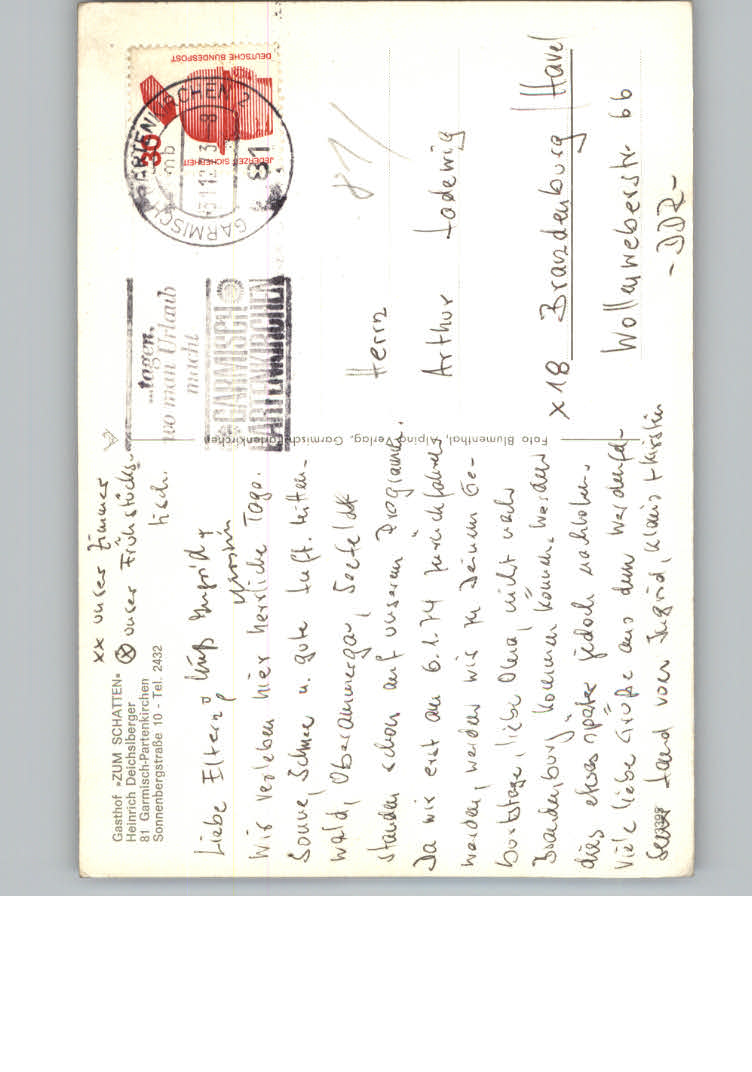 Gasthof »ZUM SCHATTEN«
Heinrich Deichslberger
81 Garmisch-Partenkirchen
Sonnenbergstraße 10 - Tel. 2432
xx unser Zimmer
⊗ unser Frühstücks-
tisch.
Liebe Eltern,
Wir verleben hier herrliche Tage.
Sonne, Schnee u. gute Luft. Mitten-
wald, Oberammergau, Seefeld
standen schon auf unserem Programm.
Da wir erst am 6.1.74 zurückfahren
werden, werden wir zu Deinem Ge-
burtstage, liebe Oma, nicht nach
Brandenburg kommen können, werden
dies etwas später jedoch nachholen.
Viele liebe Grüße aus dem Werdenfel-
Land von Ingrid, Klaus + Kirstin
Foto Blumenthal, Alping-Verlag, Garmisch-Partenkirchen
...tagen,
wo man Urlaub
macht
GARMISCH
PARTENKIRCHEN
GARMISCH-PARTENKIRCHEN 2
mb
81
DEUTSCHE BUNDESPOST
JEDERZEIT SICHERHEIT
30
81/
Herrn
Arthur Ladewig
x 18 Brandenburg / Havel
Wollenweberstr 66
- DDR -